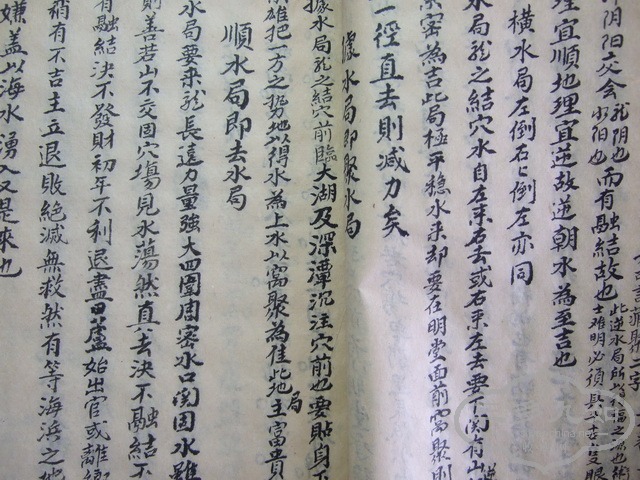 二字
此逆水局所以
士难明必须具
阴阳交会 龙阴也 水阳也 而有融結故也
理宜順地理宜逆故逆朝水為至吉也
橫水局左倒右右倒左亦同
水局龙之結穴水自左來右去或右來左去要下関有山
紧密為吉此局極平穩水來却要在明堂面前窩聚則
一徑直去則减力矣
據水局即聚水局
據水局龙之結穴前臨大湖及深潭沉注穴前也要貼身下
雄把一方之势地以得水為上水以窩聚為佳此地局主富貴
順水局即去水局
水局要來龙長遠力量強大四圍周密水口関固水雖
則善若山不交固穴場見水蕩然真去决不融結不
有融結决不發財初年不利退盡田廬始出官或離鄉
稍有不吉主立退敗絕滅無救然有等海浜之地
嫌盖以海水湧入又是來也